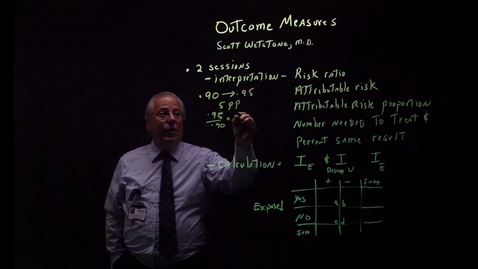 Outcome Measures
Scott Wetstone, M.D.
• 2 sessions
- interpretation - Risk ratio
• .90 → .95 Attributable risk
5 pp Attributable Risk proportion
.95 Number Needed To Treat &
.90 Percent same result
- calculation + I E & I Disnov I E
+ - Sum
Exposed Yes a b
No c d
Sum